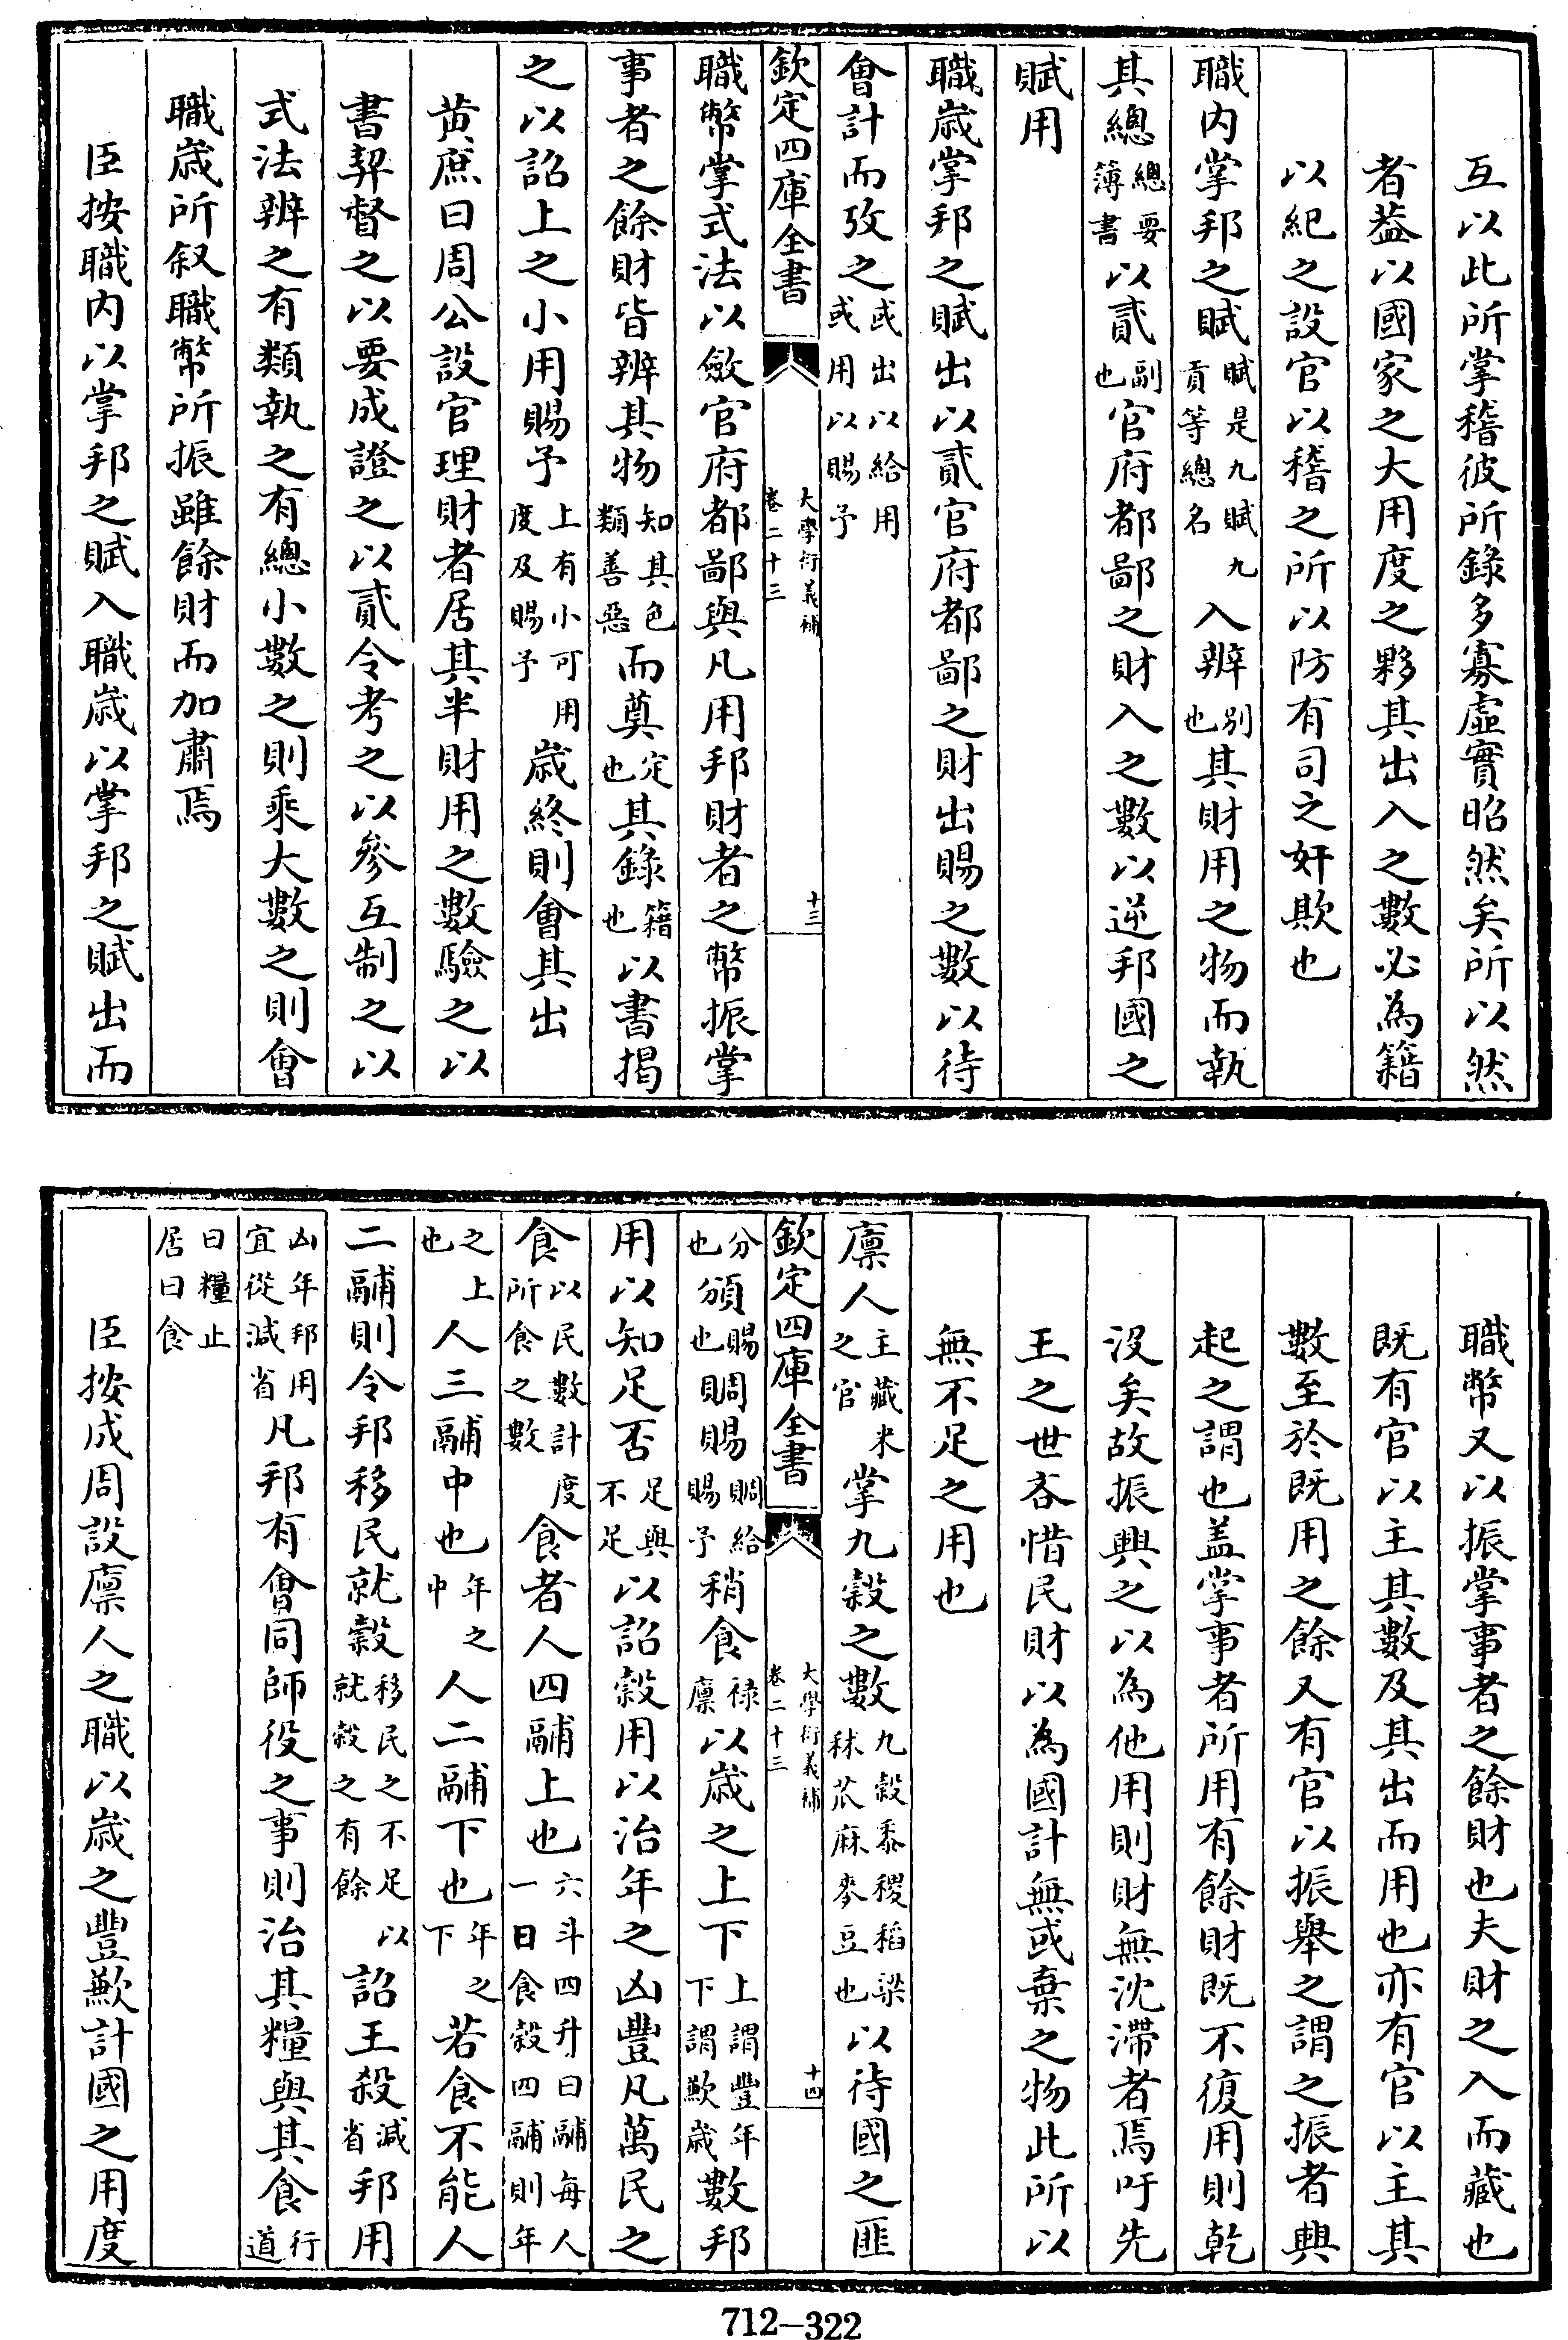 互以此所掌稽彼所錄多寡虛實昭然矣所以然
者葢以國家之大用度之夥其出入之數必為籍
以紀之設官以稽之所以防有司之奸欺也
職内掌邦之賦賦是九賦九貢等總名入辨别也其財用之物而執
其總總要簿書以貳副也官府都鄙之財入之數以逆邦國之
賦用
職歲掌邦之賦出以貳官府都鄙之財出賜之數以待
會計而攷之或出以給用或用以賜予
欽定四庫全書
大學衍義補
卷二十三
十三
職幣掌式法以斂官府都鄙與凡用邦財者之幣振掌
事者之餘財皆辨其物知其色類善惡而奠定也其錄籍也以書揭
之以詔上之小用賜予上有小可用度及賜予歲終則會其出
黄庶曰周公設官理財者居其半財用之數驗之以
書契督之以要成證之以貳令考之以參互制之以
式法辨之有類執之有總小數之則乘大數之則會
職歲所叙職幣所振雖餘財而加肅焉
臣按職内以掌邦之賦入職歲以掌邦之賦出而
職幣又以振掌事者之餘財也夫財之入而藏也
既有官以主其數及其出而用也亦有官以主其
數至於既用之餘又有官以振舉之謂之振者興
起之謂也盖掌事者所用有餘財既不復用則乾
沒矣故振興之以為他用則財無沈滯者焉吁先
王之世吝惜民財以為國計無或棄之物此所以
無不足之用也
廪人主藏米之官掌九穀之數九穀黍稷稻粱秫苽麻麥豆也以待國之匪
欽定四庫全書
大學衍義補
卷二十三
十四
分也頒賜也賙賜賙給賜予稍食祿廪以歲之上下上謂豐年下謂歉歲數邦
用以知足否足與不足以詔穀用以治年之凶豐凡萬民之
食以民數計度所食之數食者人四鬴上也六斗四升曰鬴每人一日食穀四鬴則年
之上也人三鬴中也年之中人二鬴下也年之下若食不能人
二鬴則令邦移民就穀移民之不足以就穀之有餘詔王殺減省邦用
凶年邦用宜從減省凡邦有會同師役之事則治其糧與其食行道
曰糧止居曰食
臣按成周設廪人之職以歲之豐歉計國之用度
712-322